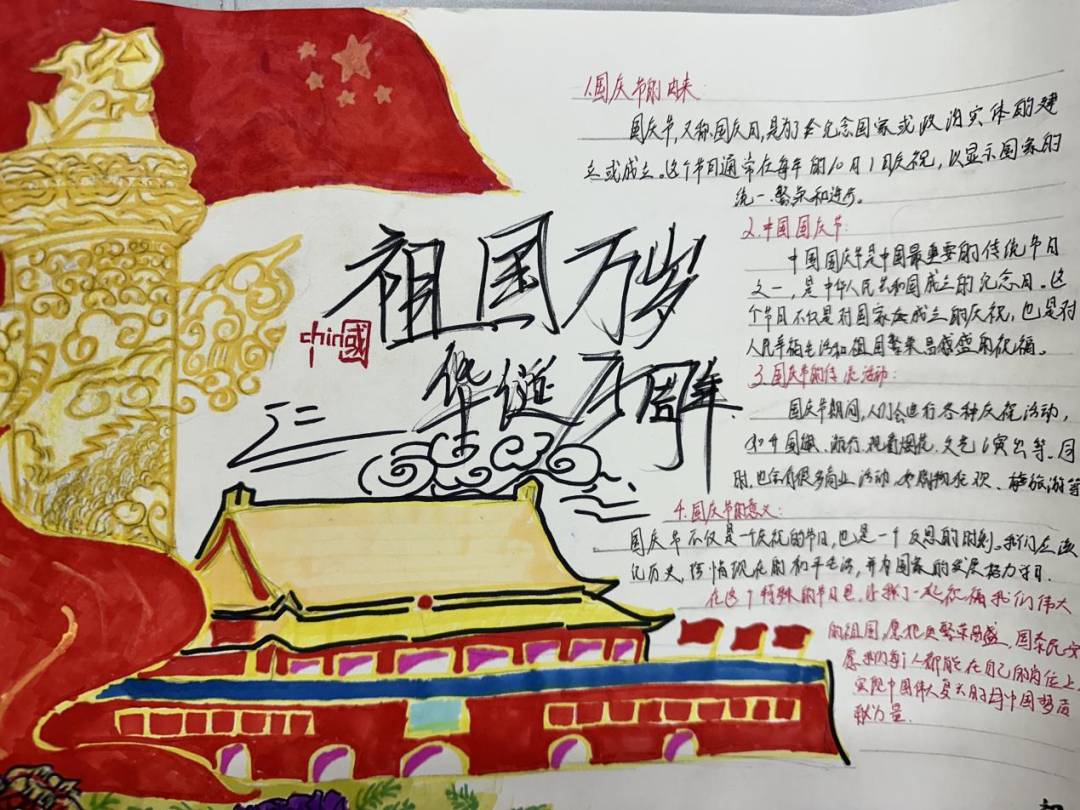 祖国万岁
chin國
华诞万周年
1.国庆节的由来:
国庆节,又称国庆日,是为了纪念国家或政治实体的建
立或成立。这个节日通常在每年的10月1日庆祝,以显示国家的
统一、繁荣和进步。
2.中国国庆节:
中国国庆节是中国最重要的传统节日
之一,是中华人民共和国成立的纪念日。这
个节日不仅是对国家成立的庆祝,也是对
人民幸福生活和祖国繁荣昌盛的祝福。
3.国庆节的传统活动:
国庆节期间,人们会进行各种庆祝活动,
如升国旗、游行、观看烟花、文艺演出等。同
时,也会有很多商业活动,如购物狂欢、旅游等
4.国庆节的意义:
国庆节不仅是一个庆祝的节日,也是一个反思的时刻。我们应该
记历史,珍惜现在的和平生活,并为国家的发展努力
在这个特殊的节日里,让我们一起祝福我们伟大
的祖国,愿祖国繁荣昌盛,国泰民安
愿我们每个人都能在自己的岗位上,
实现中国伟大复兴的中国梦贡
献力量.